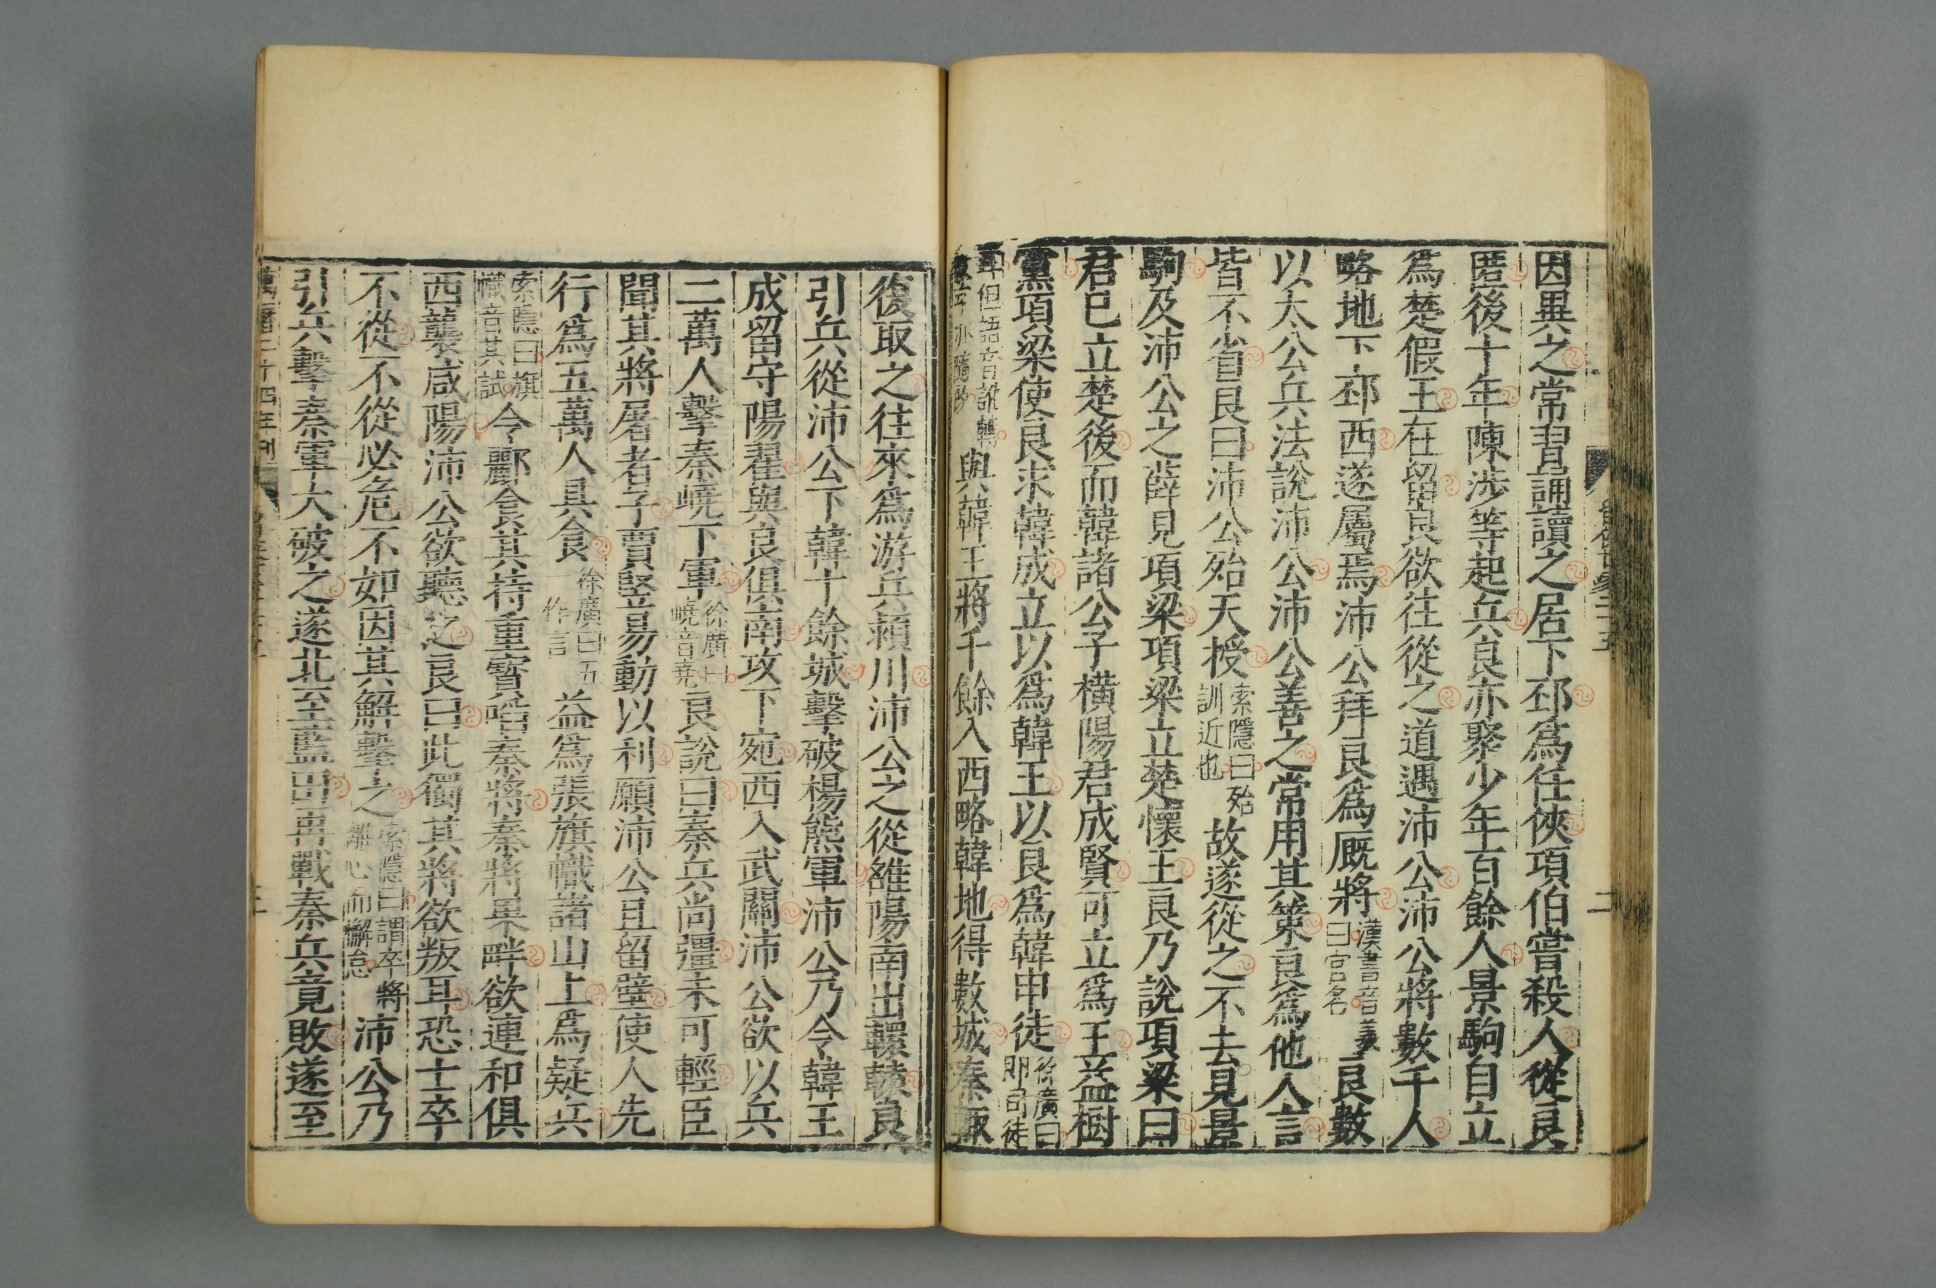 因異之常習誦讀之居下邳爲任俠項伯嘗殺人從良
匿後十年陳涉等起兵良亦聚少年百餘人景駒自立
爲楚假王在留良欲往從之道遇沛公沛公將數千人
略地下邳西遂屬焉沛公拜良爲厩將漢書音義曰官名良數
以太公兵法說沛公沛公善之常用其策良爲他人言
皆不省良曰沛公殆天授索隱曰殆訓近也故遂從之不去見景
駒及沛公之薛見項梁項梁立楚懷王良乃說項梁曰
君已立楚後而韓諸公子橫陽君成賢可立爲王益樹
黨項梁使良求韓成立以爲韓王以良爲韓申徒徐廣曰即司徒
耳但語音訛轉與韓王將千餘人西略韓地得數城秦輒
復取之往來爲游兵潁川沛公之從雒陽南出轘轅良
引兵從沛公下韓十餘城擊破楊熊軍沛公乃令韓王
成留守陽翟與良俱南攻下宛西入武關沛公欲以兵
二萬人擊秦嶢下軍徐廣曰嶢音堯良說曰秦兵尚彊未可輕臣
聞其將屠者子賈豎易動以利願沛公且留壁使人先
行爲五萬人具食徐廣曰五一作百益爲張旗幟諸山上爲疑兵
索隱曰旗幟音其試令酈食其持重寶啗秦將秦將果畔欲連和俱
西襲咸陽沛公欲聽之良曰此獨其將欲叛耳恐士卒
不從不從必危不如因其解擊之索隱曰謂卒將離心而懈怠沛公乃
引兵擊秦軍大破之遂北至藍田再戰秦兵竟敗遂至
萬曆二十四年刊